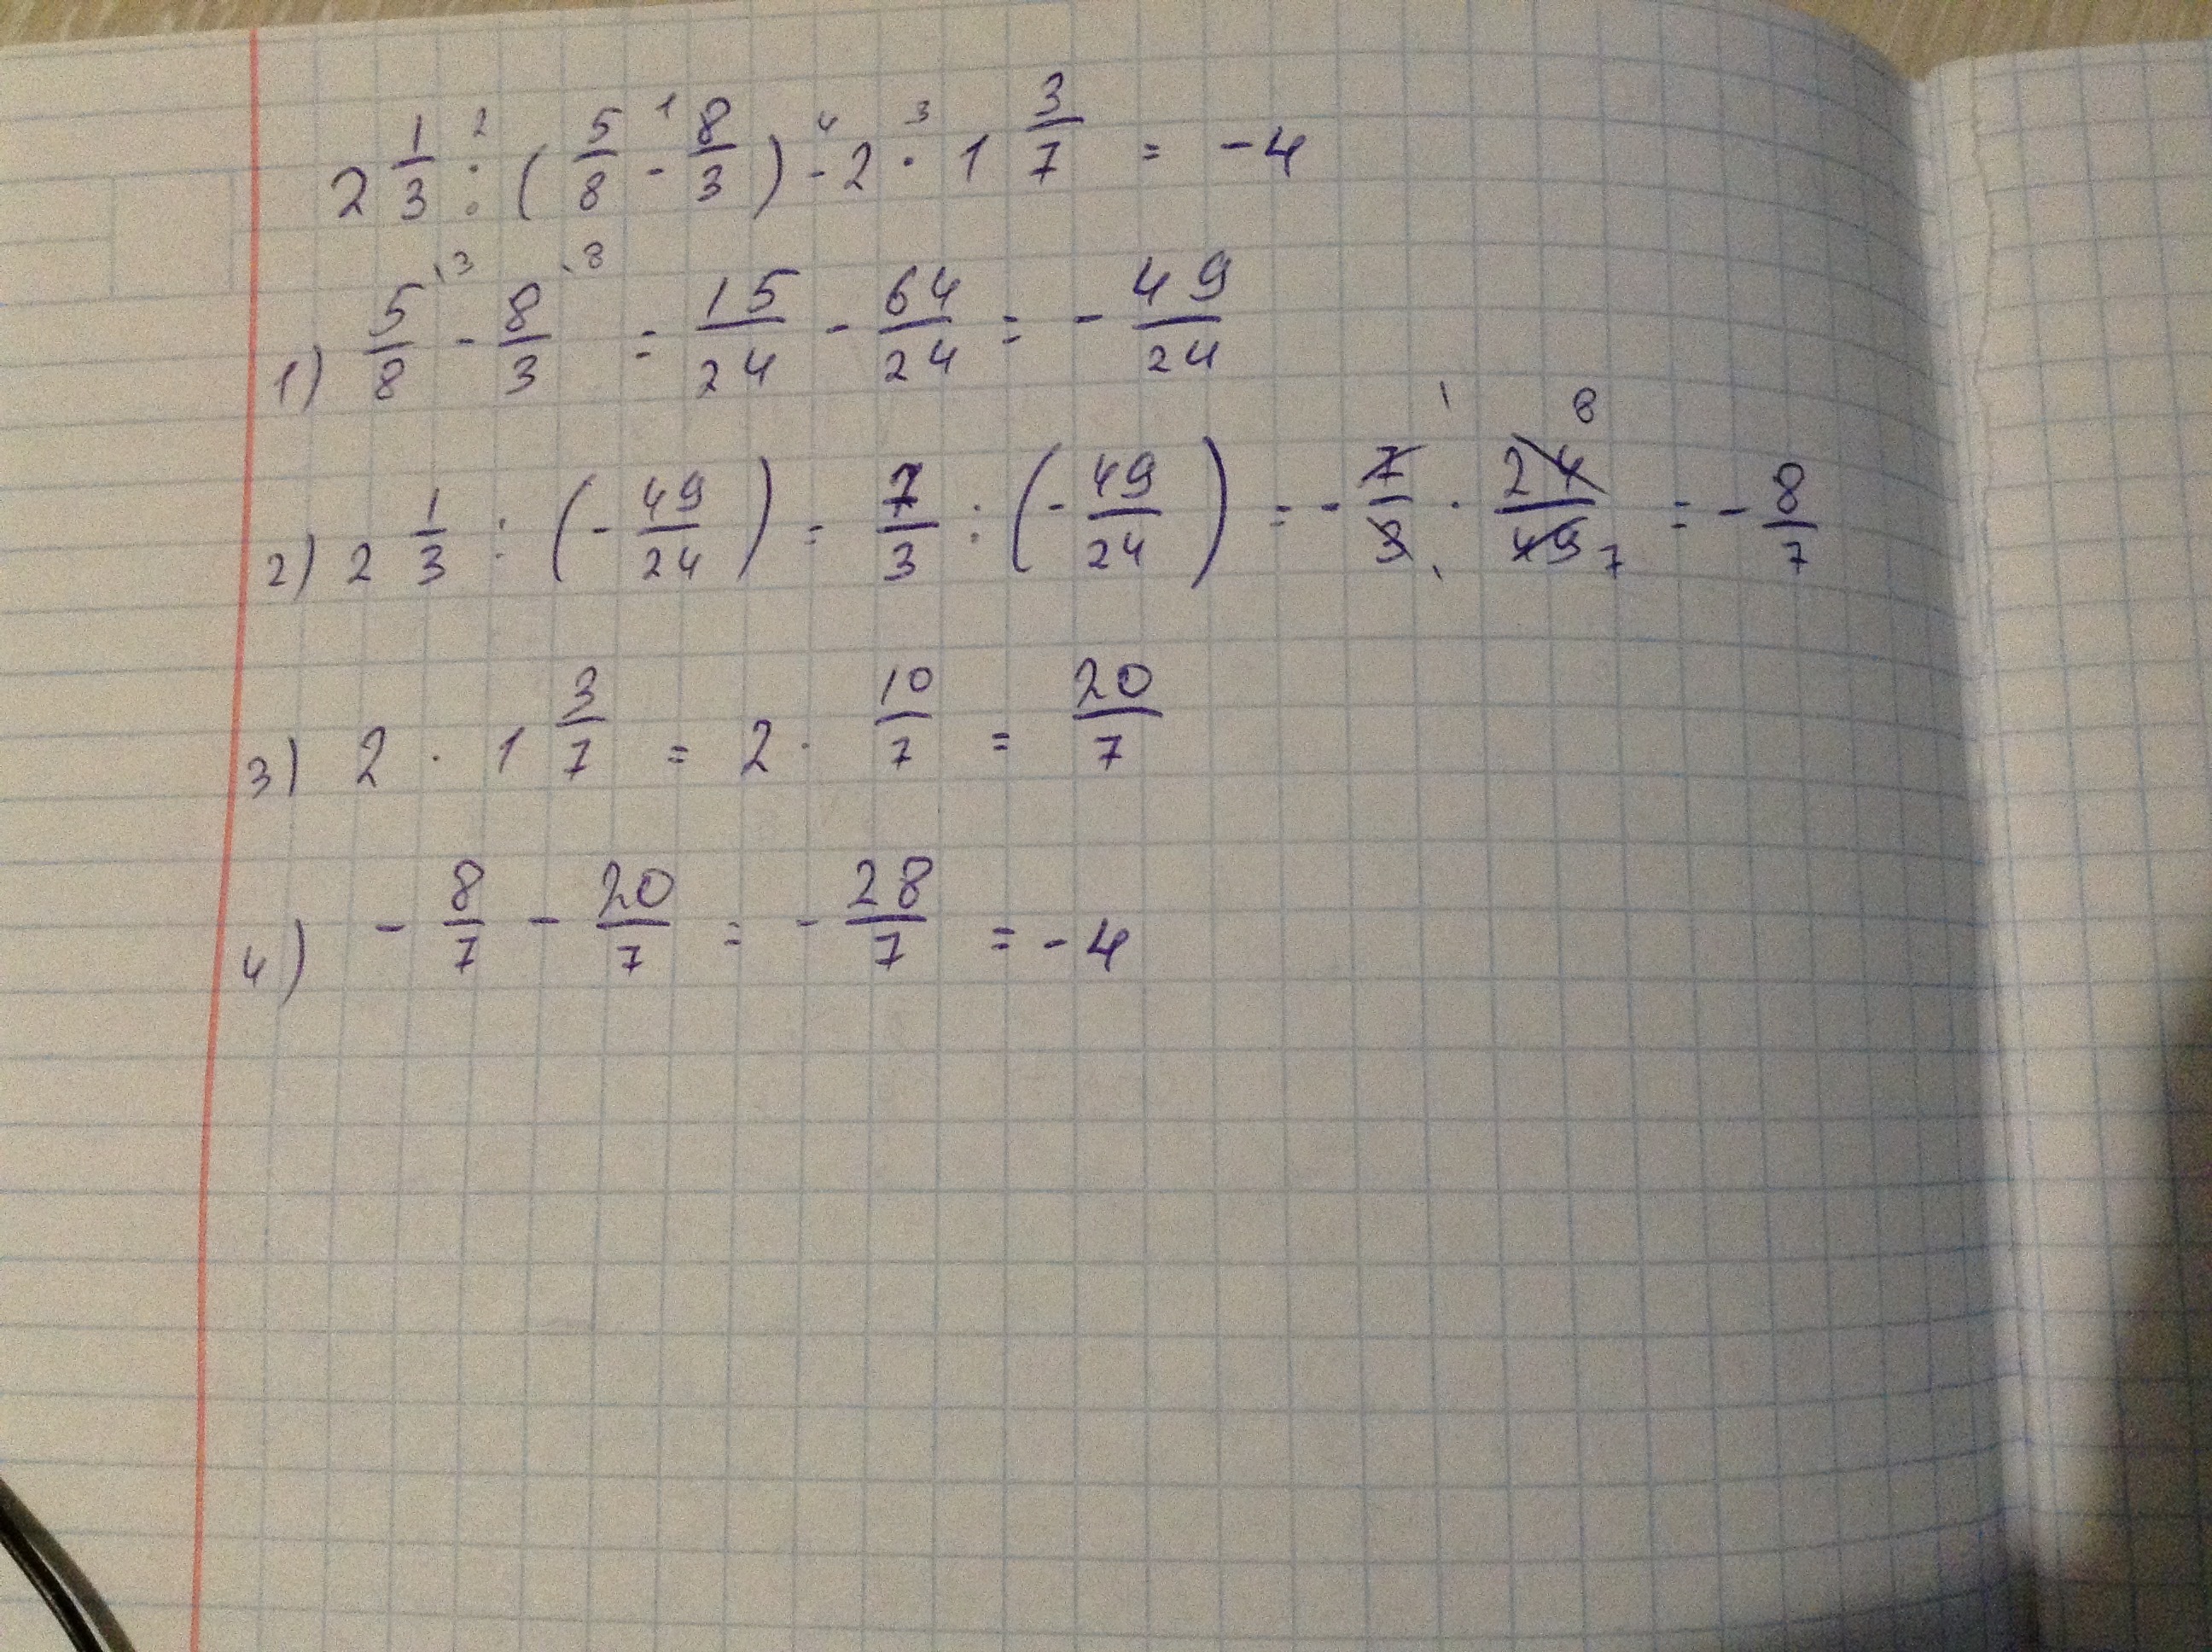 2 1/3 : (5/8 - 8/3) - 2 · 1 3/7 = -4
1) 5/8 \3 - 8/3 \8 = 15/24 - 64/24 = - 49/24
2) 2 1/3 : (- 49/24) = 7/3 : (- 49/24) = - 7/3 · 24/49 = - 8/7
3) 2 · 1 3/7 = 2 · 10/7 = 20/7
4) - 8/7 - 20/7 = - 28/7 = -4